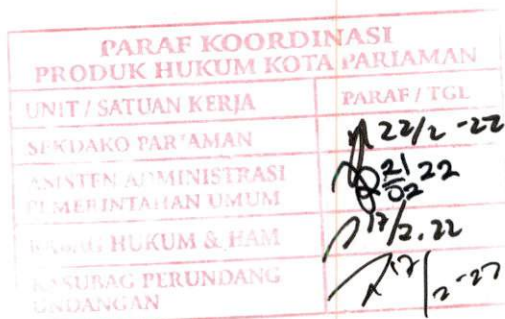 PARAF KOORDINASI
PRODUK HUKUM KOTA PARIAMAN
UNIT / SATUAN KERJA PARAF / TGL
SEKDAKO PARIAMAN 22/2-22
ASISTEN ADMINISTRASI
PEMERINTAHAN UMUM 21/02 22
HUKUM & HAM 17/2.22
KASUBAG PERUNDANG
UNDANGAN 17/2-22